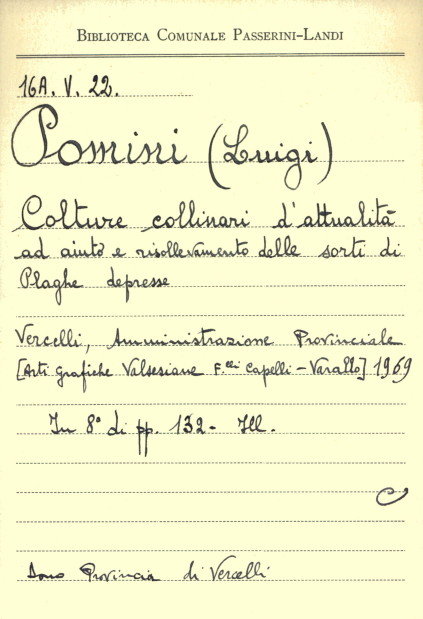 BIBLIOTECA COMUNALE PASSERINI-LANDI
16A. V. 22.
Pomini (Luigi)
Colture collinari d'attualità
ad aiuto e risollevamento delle sorti di
Plaghe depresse
Vercelli, Amministrazione Provinciale
[Arti grafiche Valsesiane F.lli Capelli - Varallo] 1969
In 8° di pp. 132 - Ill.
Dono Provincia di Vercelli